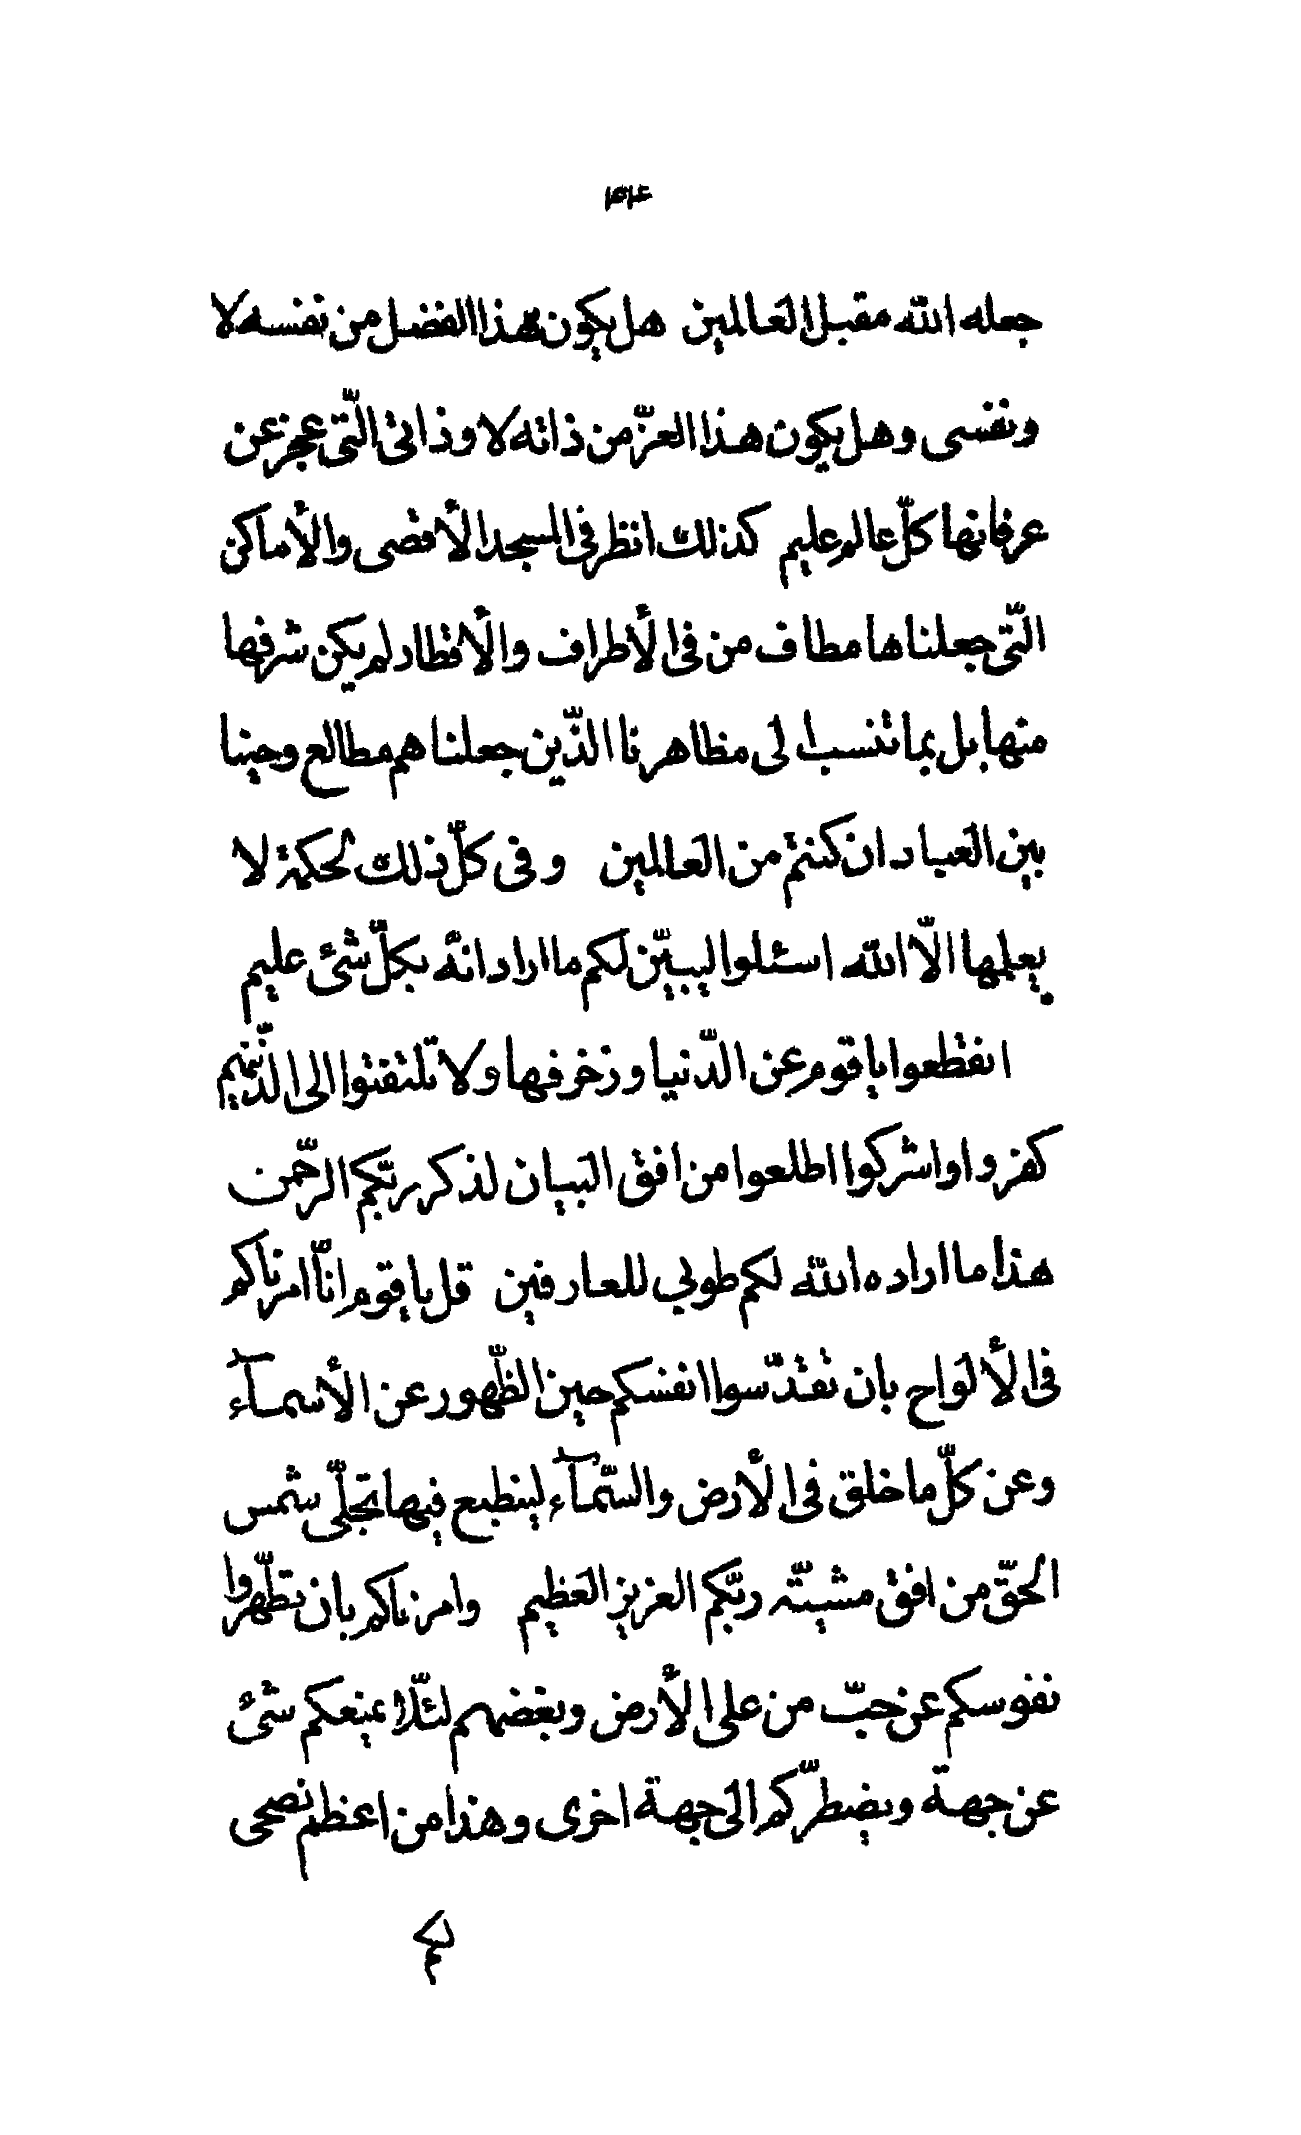 جعله الله مقبل العالمین هل یکون هذا الفضل من نفسه لا
ونفسی وهل یکون هذا العزّ من ذاته لا وذاتی الّتی عجز عن
عرفانها کلّ عالم علیم کذلک انظر فی المسجد الأقصی والأماکن
الّتی جعلناها مطاف من فی الأطراف والأقطار لم یکن شرفها
منها بل بما تنسب الی مظاهرنا الّذین جعلناهم مطالع وحینا
بین العباد ان کنتم من العالمین وفی کلّ ذلک لحکمة لا
یعلمها الّا الله اسئلوا لیبیّن لکم ما اراد انّه بکلّ شئ علیم
انقطعوا یا قوم عن الدّنیا وزخرفها ولا تلتفتوا الی الّذینهم
کفروا واشرکوا اطلعوا من افق البیان لذکر ربّکم الرّحمن
هذا ما اراده الله لکم طوبی للعارفین قل یا قوم انّا امرناکم
فی الألواح بان تقدّسوا انفسکم حین الظّهور عن الأسمآء
وعن کلّ ما خلق فی الأرض والسّمآء لینطبع فیها تجلّی شمس
الحقّ من افق مشیّته ربّکم العزیز العظیم وامرناکم بان تطّهروا
نفوسکم عن حبّ من علی الأرض وبغضهم لئلّا یمنعکم شئ
عن جهة ویضطرّکم الی جهة اخری وهذا من اعظم نصحی
لکم